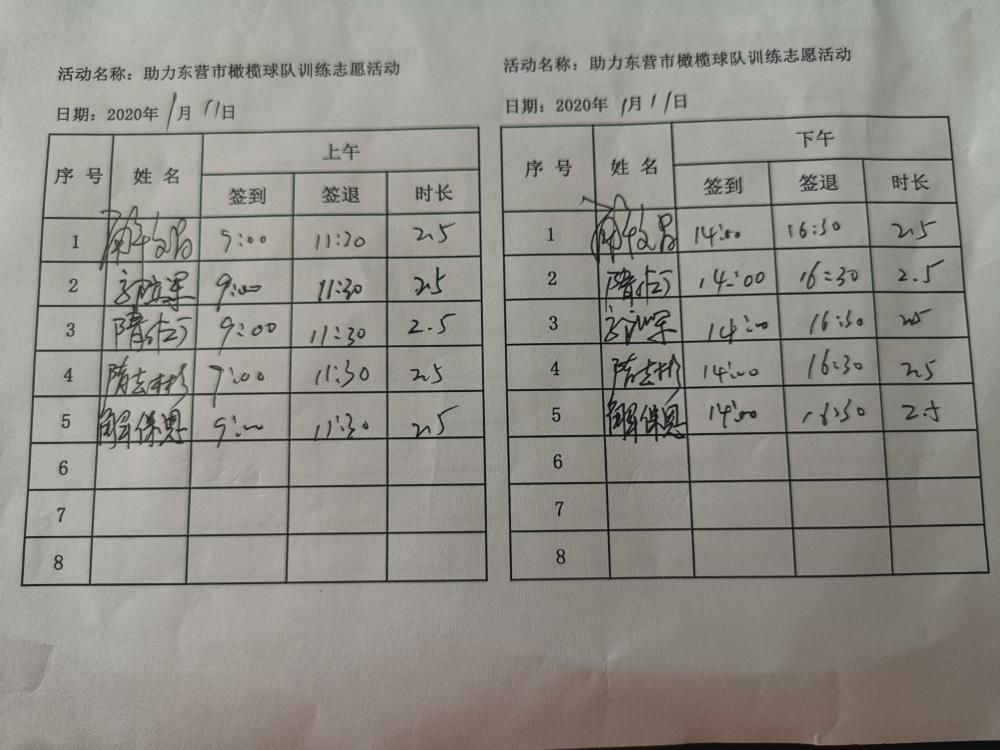 活动名称：助力东营市橄榄球队训练志愿活动
日期：2020年 1月 11日
序号 姓名 上午
签到 签退 时长
1 9:00 11:30 2.5
2 9:00 11:30 2.5
3 隋 9:00 11:30 2.5
4 隋志彬 9:00 11:30 2.5
5 解保恩 9:00 11:30 2.5
6
7
8
活动名称：助力东营市橄榄球队训练志愿活动
日期：2020年 1月 11日
序号 姓名 下午
签到 签退 时长
1 14:00 16:30 2.5
2 隋 14:00 16:30 2.5
3 14:00 16:30 2.5
4 隋志彬 14:00 16:30 2.5
5 解保恩 14:00 16:30 2.5
6
7
8